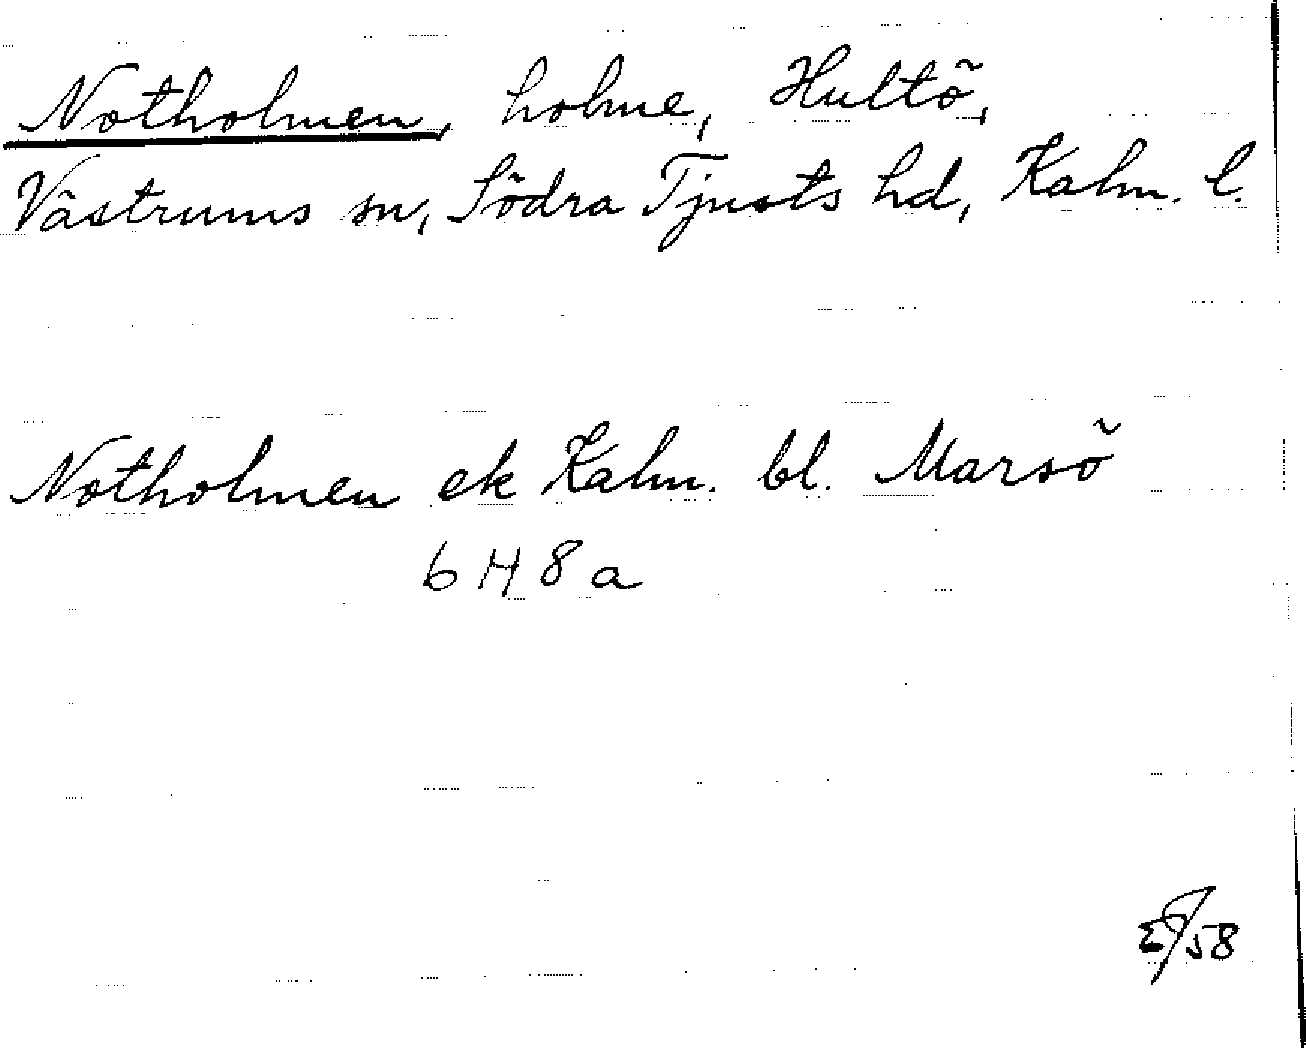 Notholmen, holme, Hultö,
Västrums sn, Södra Tjusts hd, Kalm. l.
Notholmen ek Kalm. bl. Marsö
6 H 8 a
58